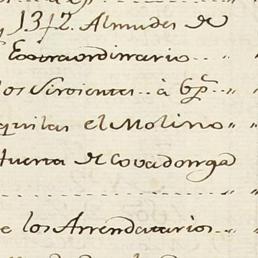 y 1312. Almudes de
Extraordinario.. " "
los Sirvientes.. à 6p.s " "
quilas el Molino " "
Huerta de Covadonga
" "
e los Arrendatarios.. " "